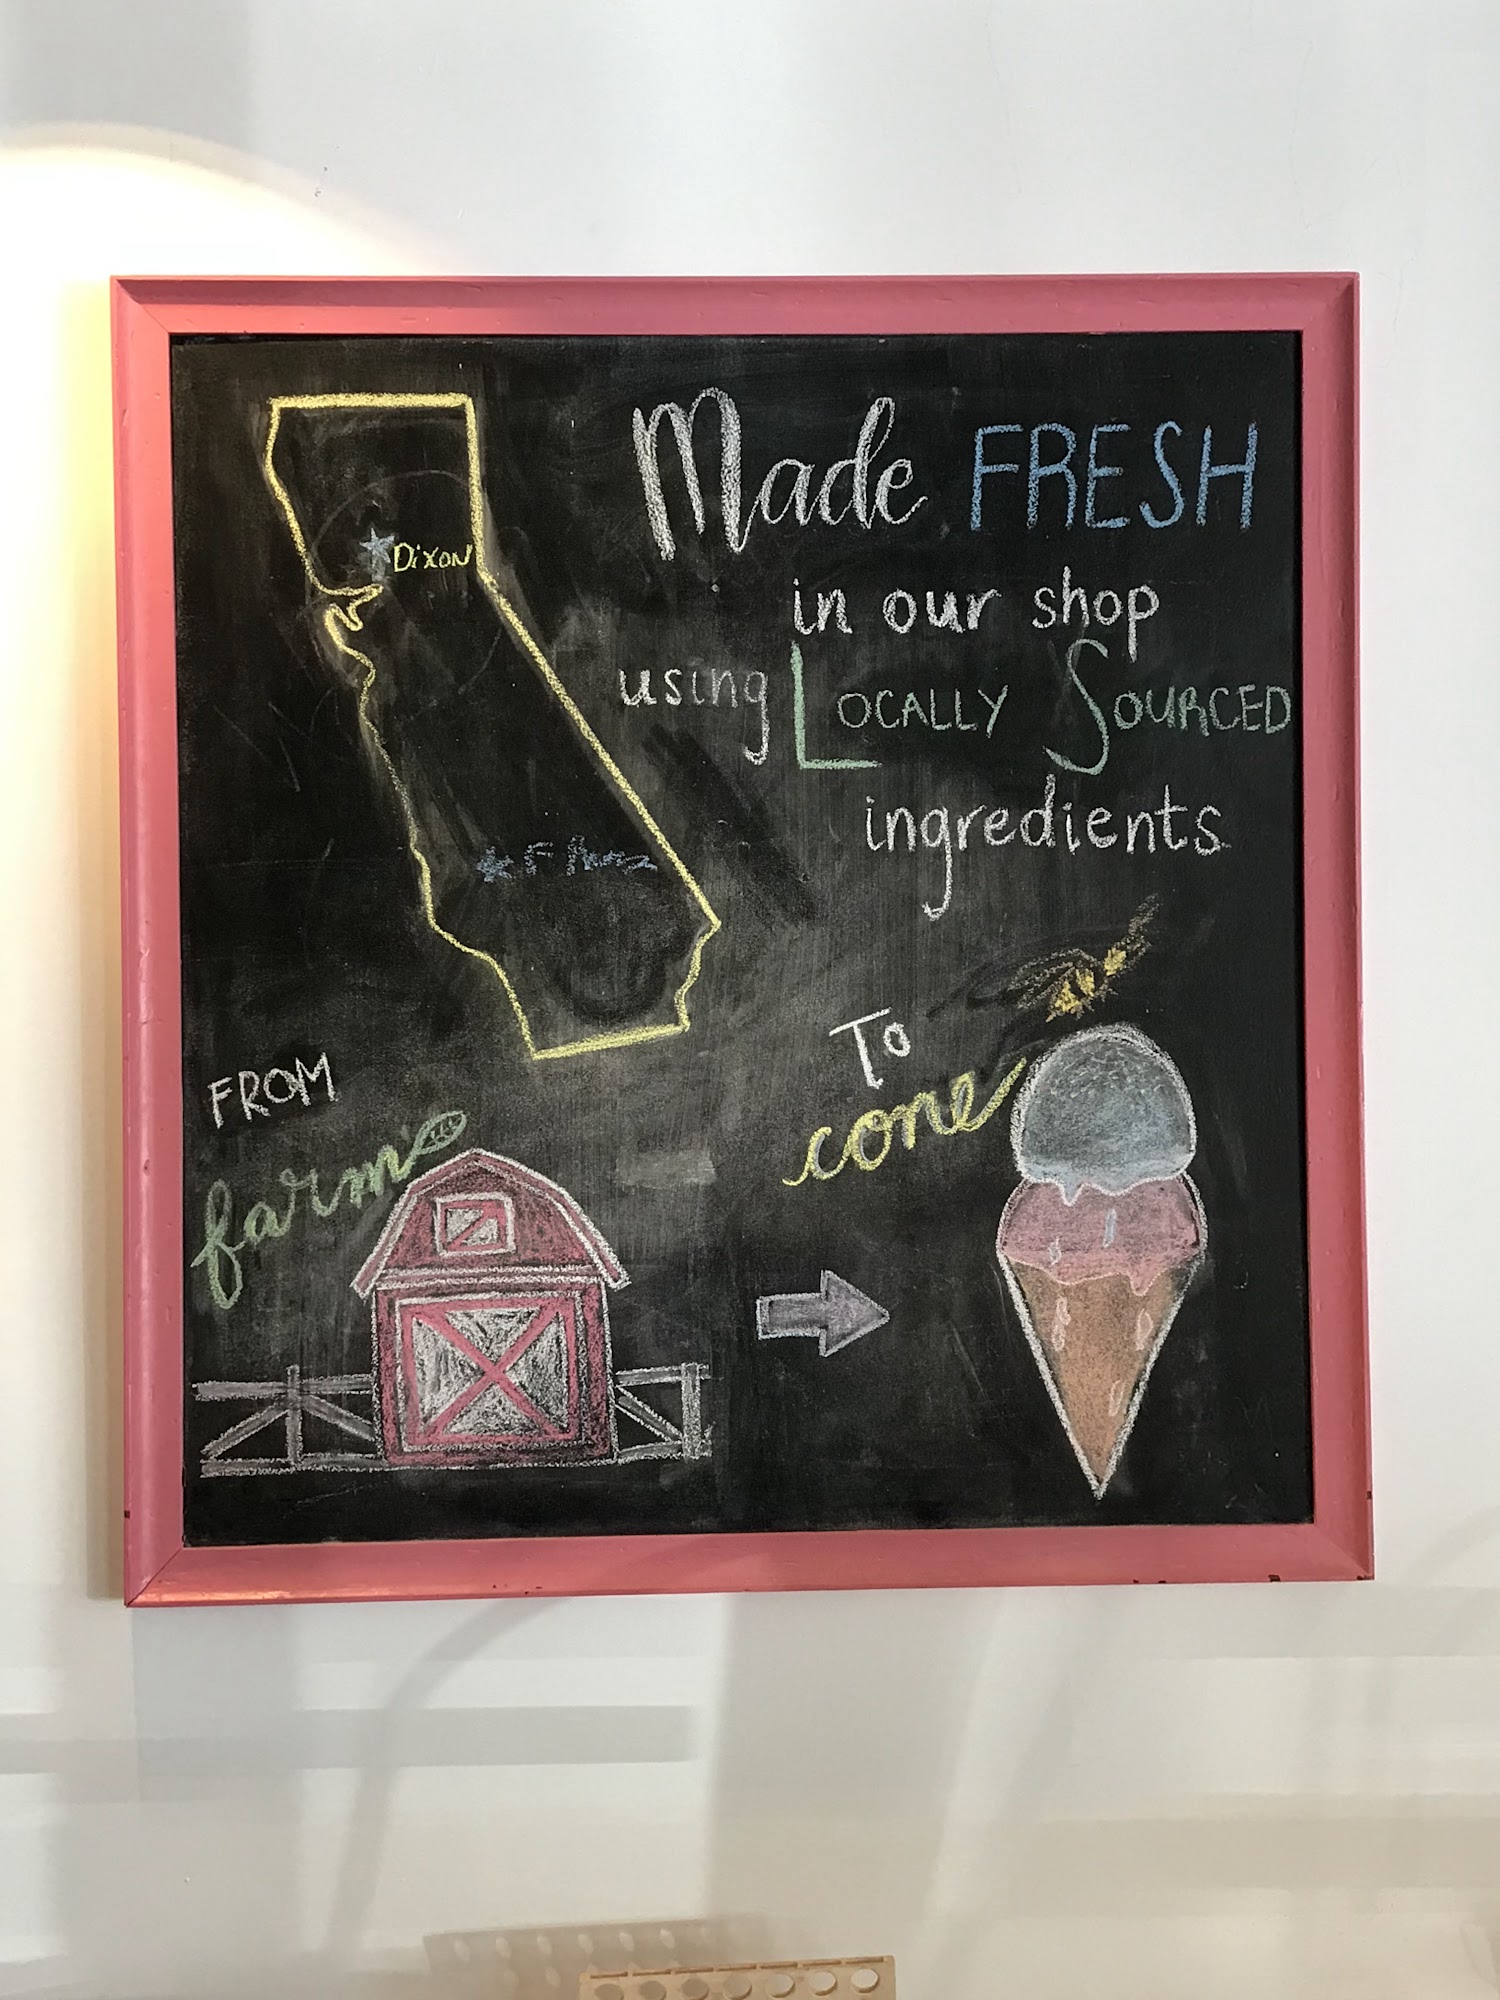 Made FRESH
in our shop
using LOCALLY SOURCED
ingredients
DIXON
FROM
farm
TO
cone